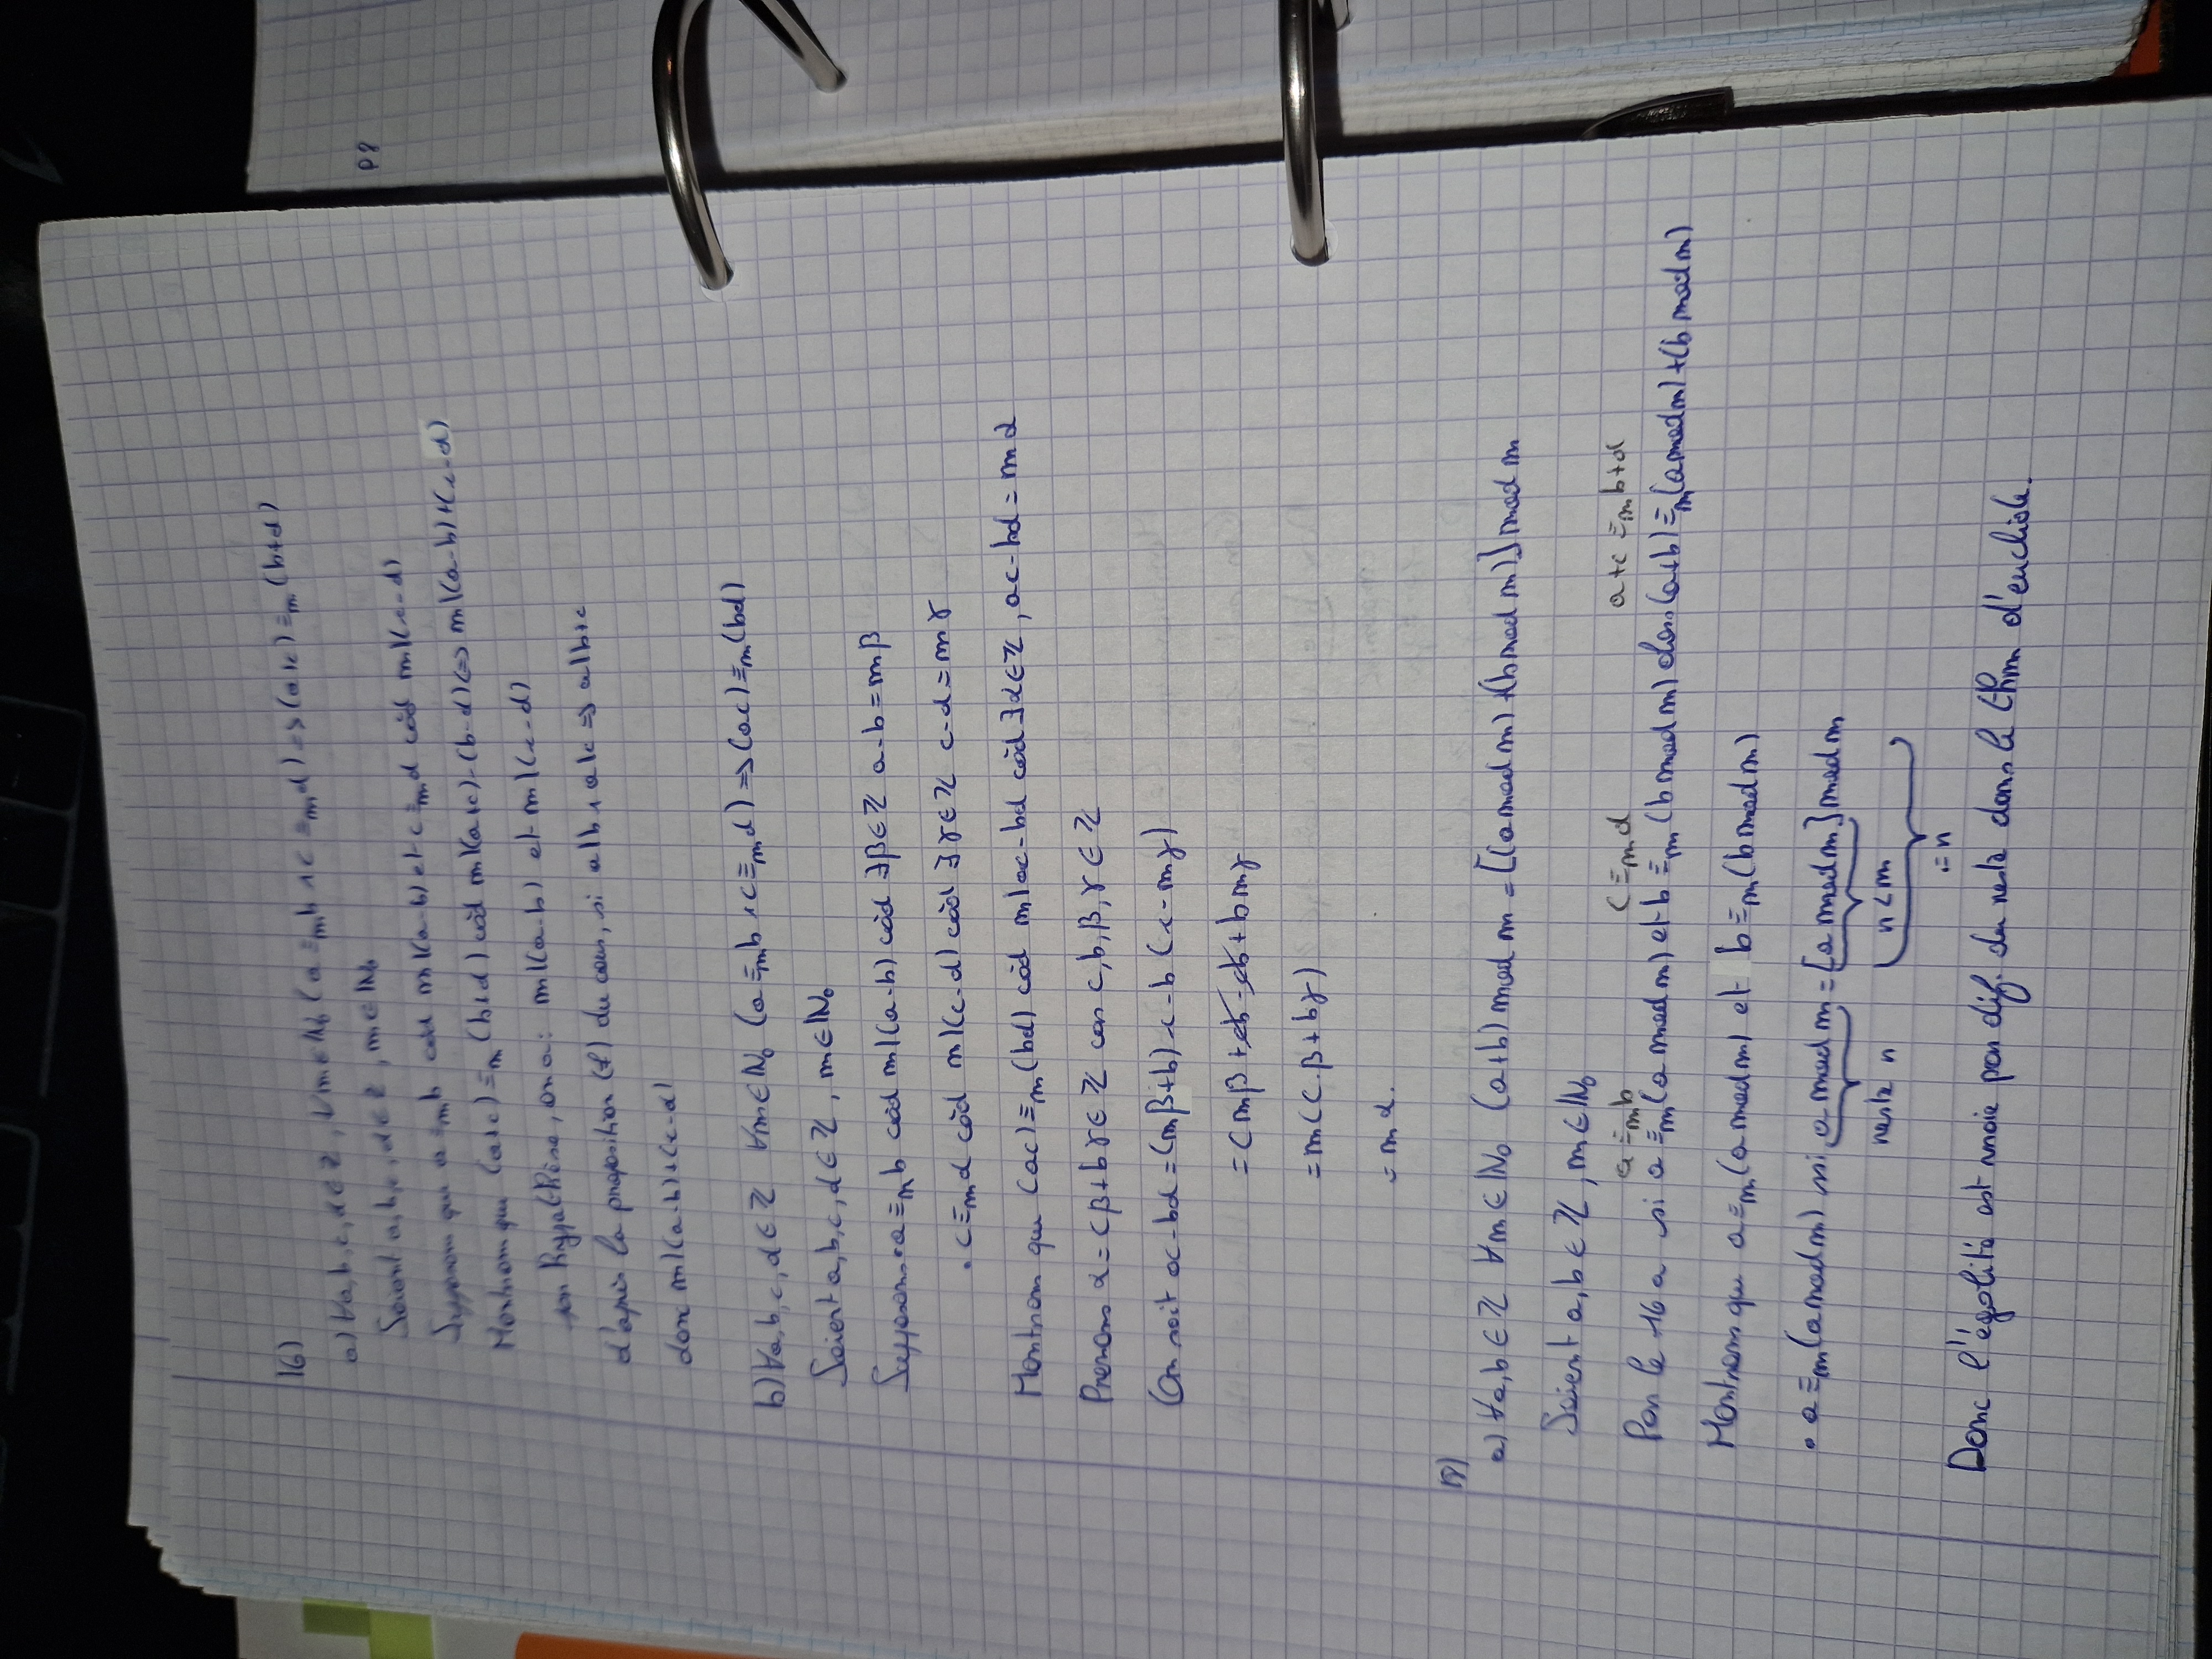 16)
a) ∀a,b,c,d ∈ ℤ, ∀m ∈ ℕ₀ (a ≡ₘ b ∧ c ≡ₘ d) => (a+c) ≡ₘ (b+d)
Soient a,b,c,d ∈ ℤ, m ∈ ℕ₀
Supposons que a ≡ₘ b càd m|(a-b) et c ≡ₘ d càd m|(c-d)
Montrons que (a+c) ≡ₘ (b+d) càd m|(a+c)-(b-d) <=> m|(a-b)+(c-d)
par hypothèse, on a: m|(a-b) et m|(c-d)
d'après la proposition (f) du cours, si a|b ∧ a|c => a|b+c
donc m|(a-b)+(c-d)
b) ∀a,b,c,d ∈ ℤ ∀m ∈ ℕ₀ (a ≡ₘ b ∧ c ≡ₘ d) => (ac) ≡ₘ (bd)
Soient a,b,c,d ∈ ℤ, m ∈ ℕ₀
Supposons • a ≡ₘ b càd m|(a-b) càd ∃β ∈ ℤ a-b = mβ
• c ≡ₘ d càd m|(c-d) càd ∃γ ∈ ℤ c-d = mγ
Montrons que (ac) ≡ₘ (bd) càd m|ac-bd càd ∃α ∈ ℤ, ac-bd = mα
Prenons α = cβ+bγ ∈ ℤ car c,b,β,γ ∈ ℤ
On voit ac-bd = (mβ+b)c-b(c-mγ)
= cmβ+cb-cb+bmγ
= m(c.β+bγ)
= mα.
18)
a) ∀a,b ∈ ℤ ∀m ∈ ℕ₀ (a+b) mod m = [(a mod m)+(b mod m)] mod m
Soient a,b ∈ ℤ, m ∈ ℕ₀
a ≡ₘ b c ≡ₘ d a+c ≡ₘ b+d
Par le 16 a si a ≡ₘ (a mod m) et b ≡ₘ (b mod m) alors (a+b) ≡ₘ (a mod m)+(b mod m)
Montrons que a ≡ₘ (a mod m) et b ≡ₘ (b mod m)
• a ≡ₘ (a mod m) si a mod m = [a mod m] mod m
reste r r<m
= r
Donc l'égalité est vraie par déf. du reste dans le thm d'euclide.